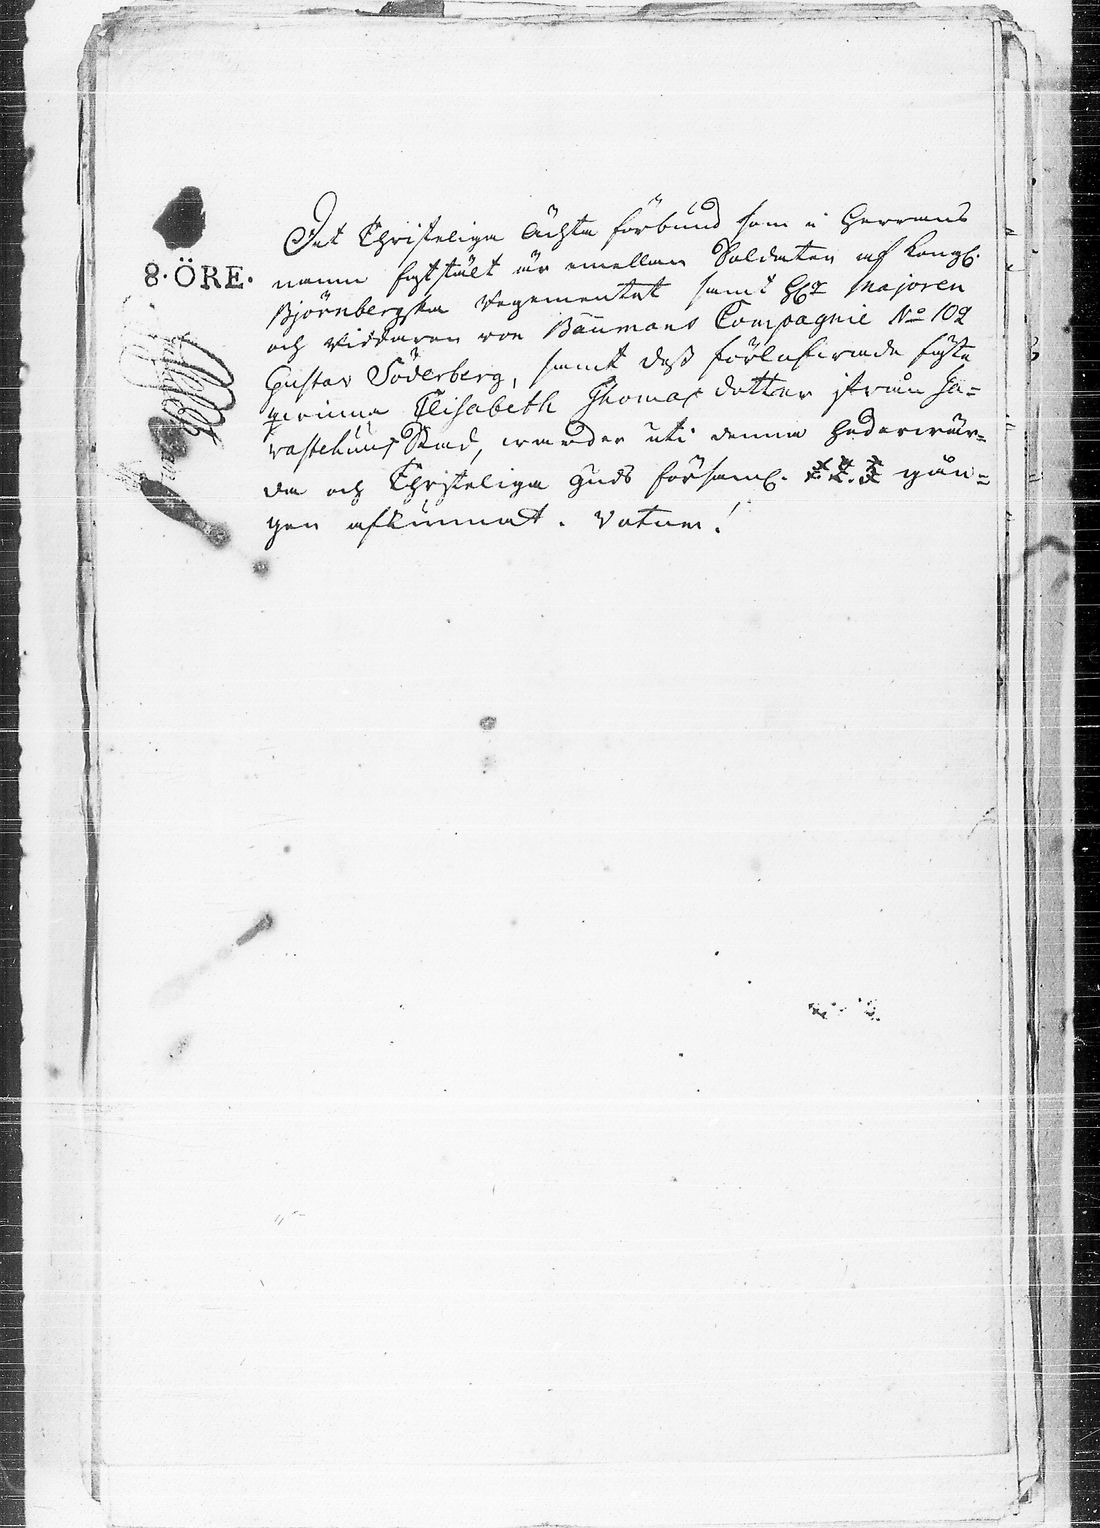 8·ÖRE·
Det Christeliga Ächta förbund som i Herrans
namn fastsält är emellan Soldaten af Kongl.
Björnebergska Regementet samt HEr Majoren
och Riddaren von Baumans Compagnie No 102
Gustav Söderberg, samt dess förlofwade fäste
qwinna Elisabeth Thomas dotter ifrån Ta-
wastehuus Stad, warder uti denna Hederwär-
da och Christeliga Guds församl. gån-
gen afkunnat. Votum!